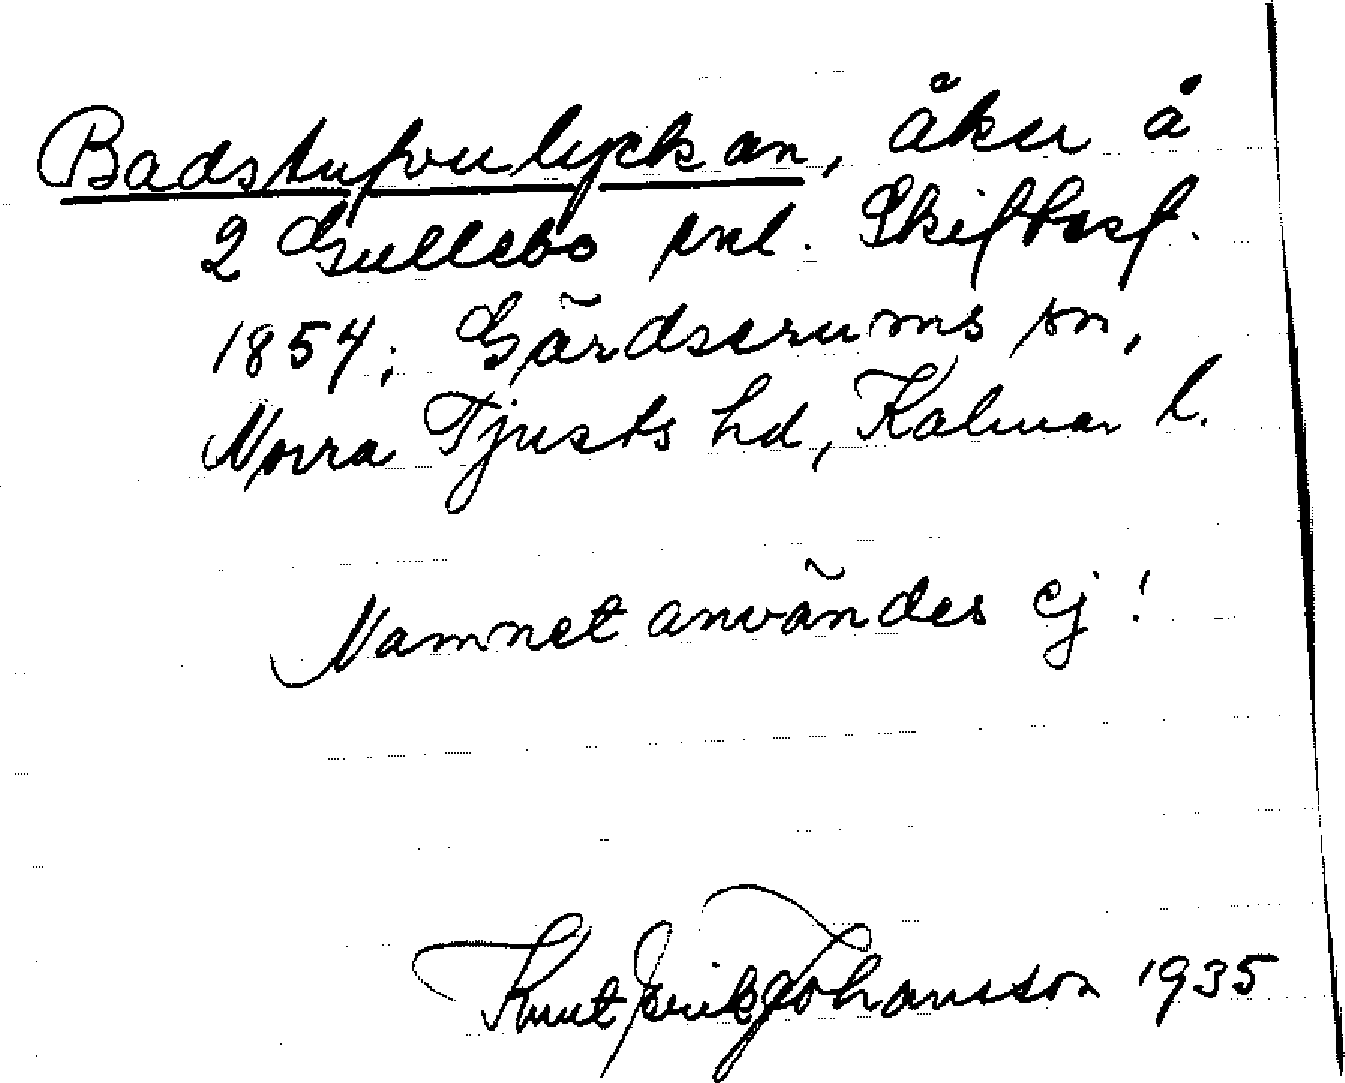 Badstufvulyckan, åker å
2 Gullebo enl. Skiftesf.
1854; Gärdserums sn,
Norra Tjusts hd, Kalmar l.
Namnet användes ej!
Knut Erik Johansson 1935